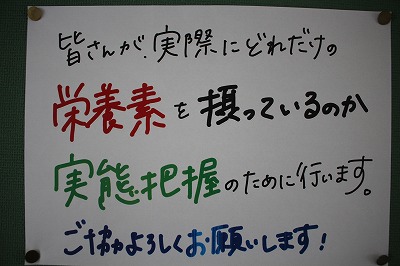 皆さんが、実際にどれだけの
栄養素を摂っているのか
実態把握のために行います。
ご協力よろしくお願いします！